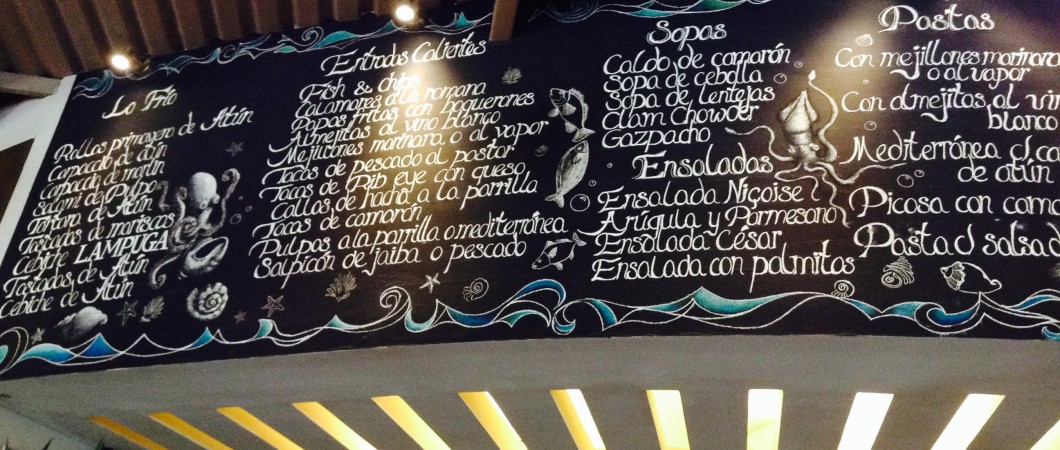 Lo Frío
Rollos primavera de Atún
Carpaccio de atún
Carpaccio de marlin
Salami de Pulpo
Tártara de Atún
Tostadas de mariscos
Cebiche LAMPUGA
Tostadas de Atún
Cebiche de Atún
Entradas Calientes
Fish & chips
Calamares a la romana
Papas fritas con boquerones
Almejitas al vino blanco
Mejillones marinara o al vapor
Tacos de pescado al pastor
Tacos de Rib eye con queso
Callos de hacha a la parrilla
Tacos de camarón
Pulpos a la parrilla o mediterránea
Salpicón de jaiba o pescado
Sopas
Caldo de camarón
Sopa de cebolla
Sopa de lentejas
Clam Chowder
Gazpacho
Ensaladas
Ensalada Niçoise
Arúgula y Parmesano
Ensalada César
Ensalada con palmitos
Pastas
Con mejillones marinara
o al vapor
Con almejitas al vin
blanco
Mediterránea c/
de atún
Picosa con cam
Pasta c/ salsa